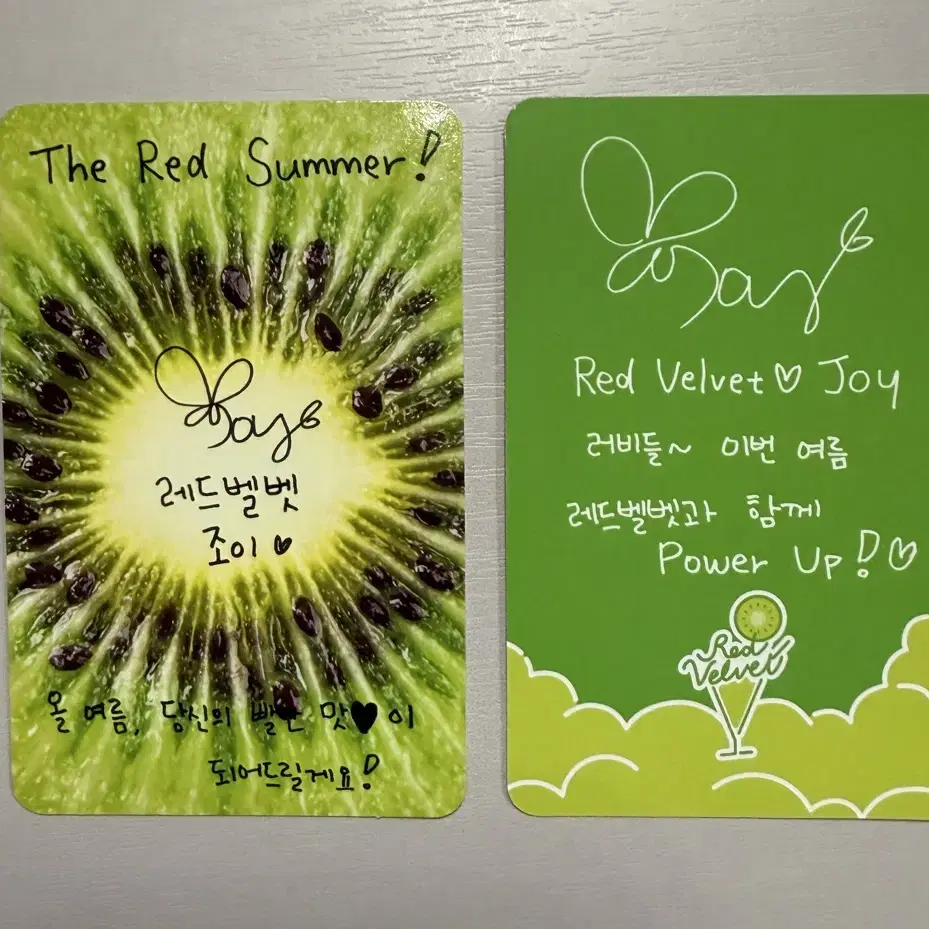 The Red Summer!
레드벨벳
조이♥
올 여름, 당신의 빨간 맛♥이
되어드릴게요!
Red Velvet♡ Joy
러비들~ 이번 여름
레드벨벳과 함께
Power Up!♡
Red
Velvet